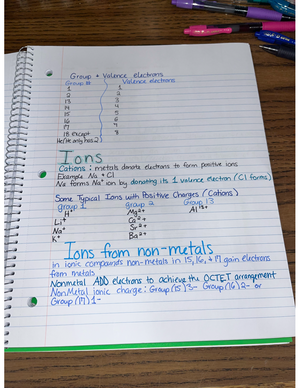 Group + Valence electrons
Group # Valence electrons
1 1
2 2
13 3
14 4
15 5
16 6
17 7
18 except 8
He (He only has 2)
Ions
Cations: metals donate electrons to form positive ions
Example Na + Cl
Na forms Na⁺ ion by donating its 1 valence electron (Cl forms)
Some Typical Ions with Positive Charges (Cations)
group 1 group 2 Group 13
H⁺ Mg²⁺ Al
Li⁺ Ca²⁺
Na⁺ Sr²⁺
K⁺ Ba²⁺
Ions from non-metals
In ionic compounds non-metals in 15, 16, + 17 gain electrons
from metals
Nonmetal ADD electrons to achieve the OCTET arrangement
NonMetal ionic charge: Group (15) 3- Group (16) 2- or
Group (17) 1-